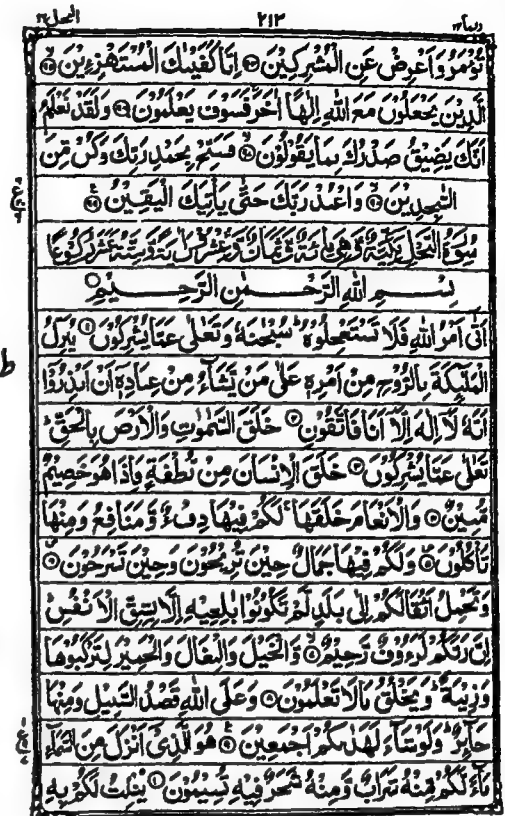 النحل ١٦ ٢١٣ ربما ١٤
تُؤْمَرُ وَاَعْرِضْ عَنِ الْمُشْرِكِيْنَ ۝٩٤ اِنَّا كَفَيْنٰكَ الْمُسْتَهْزِءِيْنَ ۝٩٥
الَّذِيْنَ يَجْعَلُوْنَ مَعَ اللّٰهِ اِلٰهًا اٰخَرَ ۚ فَسَوْفَ يَعْلَمُوْنَ ۝٩٦ وَلَقَدْ نَعْلَمُ
اَنَّكَ يَضِيْقُ صَدْرُكَ بِمَا يَقُوْلُوْنَ ۝٩٧ فَسَبِّحْ بِحَمْدِ رَبِّكَ وَكُنْ مِّنَ
السّٰجِدِيْنَ ۝٩٨ وَاعْبُدْ رَبَّكَ حَتّٰى يَاْتِيَكَ الْيَقِيْنُ ۝٩٩
سُوْرَةُ النَّحْلِ مَكِّيَّةٌ وَّهِيَ مِائَةٌ وَّثَمَانٌ وَّعِشْرُوْنَ اٰيَةً وَّسِتَّةَ عَشَرَ رُكُوْعًا
بِسْمِ اللّٰهِ الرَّحْمٰنِ الرَّحِيْمِ ۝
اَتٰٓى اَمْرُ اللّٰهِ فَلَا تَسْتَعْجِلُوْهُ ؕ سُبْحٰنَهٗ وَتَعٰلٰى عَمَّا يُشْرِكُوْنَ ۝١ يُنَزِّلُ
الْمَلٰٓئِكَةَ بِالرُّوْحِ مِنْ اَمْرِهٖ عَلٰى مَنْ يَّشَآءُ مِنْ عِبَادِهٖٓ اَنْ اَنْذِرُوْٓا
اَنَّهٗ لَآ اِلٰهَ اِلَّآ اَنَا فَاتَّقُوْنِ ۝٢ خَلَقَ السَّمٰوٰتِ وَالْاَرْضَ بِالْحَقِّ ؕ
تَعٰلٰى عَمَّا يُشْرِكُوْنَ ۝٣ خَلَقَ الْاِنْسَانَ مِنْ نُّطْفَةٍ فَاِذَا هُوَ خَصِيْمٌ
مُّبِيْنٌ ۝٤ وَالْاَنْعَامَ خَلَقَهَا ۚ لَكُمْ فِيْهَا دِفْءٌ وَّمَنَافِعُ وَمِنْهَا
تَاْكُلُوْنَ ۝٥ وَلَكُمْ فِيْهَا جَمَالٌ حِيْنَ تُرِيْحُوْنَ وَحِيْنَ تَسْرَحُوْنَ ۝٦
وَتَحْمِلُ اَثْقَالَكُمْ اِلٰى بَلَدٍ لَّمْ تَكُوْنُوْا بٰلِغِيْهِ اِلَّا بِشِقِّ الْاَنْفُسِ ؕ
اِنَّ رَبَّكُمْ لَرَءُوْفٌ رَّحِيْمٌ ۝٧ وَّالْخَيْلَ وَالْبِغَالَ وَالْحَمِيْرَ لِتَرْكَبُوْهَا
وَزِيْنَةً ؕ وَيَخْلُقُ مَا لَا تَعْلَمُوْنَ ۝٨ وَعَلَى اللّٰهِ قَصْدُ السَّبِيْلِ وَمِنْهَا
جَآئِرٌ ؕ وَلَوْ شَآءَ لَهَدٰىكُمْ اَجْمَعِيْنَ ۝٩ هُوَ الَّذِيْٓ اَنْزَلَ مِنَ السَّمَآءِ
مَآءً لَّكُمْ مِّنْهُ شَرَابٌ وَّمِنْهُ شَجَرٌ فِيْهِ تُسِيْمُوْنَ ۝١٠ يُنْۢبِتُ لَكُمْ بِهِ